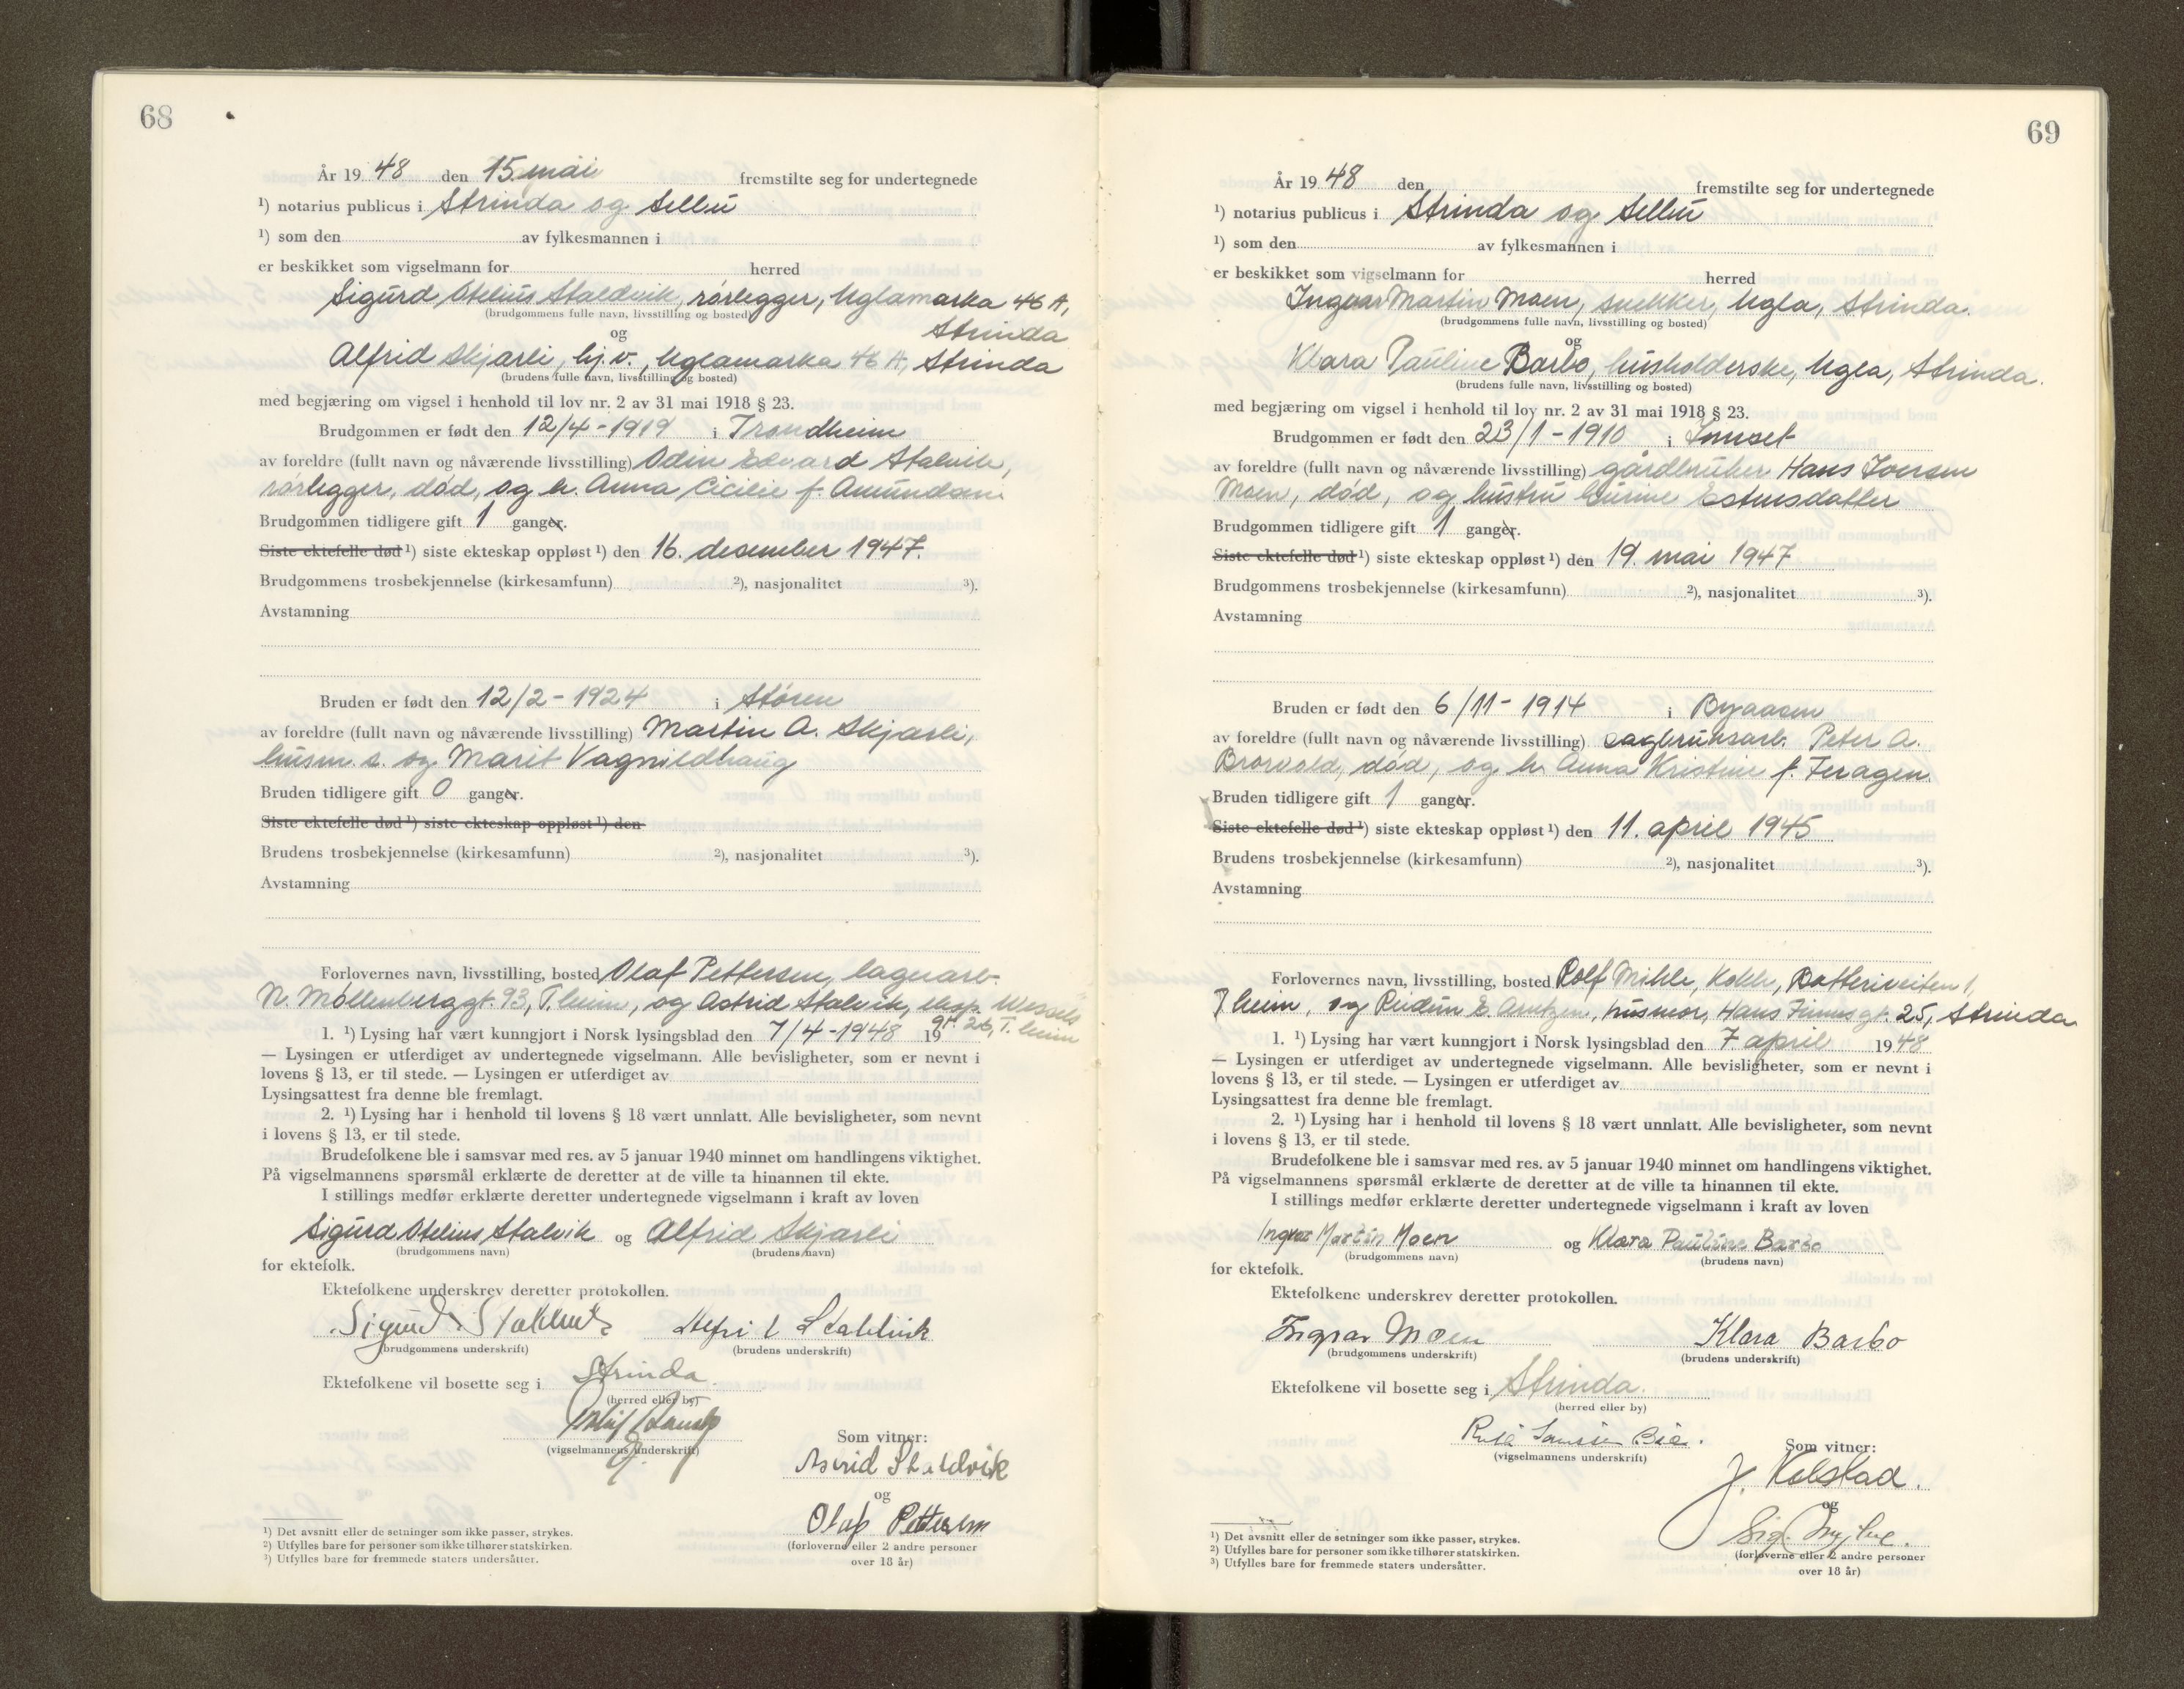 68
År 19 48 den 15. mai fremstilte seg for undertegnede
¹) notarius publicus i Strinda og Selbu
¹) som den av fylkesmannen i
er beskikket som vigselmann for herred
Sigurd Otelius Staldvik, rørlegger, Uglamarka 46 A,
(brudgommens fulle navn, livsstilling og bosted)
Strinda
og
Alfrid Skjærli, hj.v., Uglamarka 46 A, Strinda
(brudens fulle navn, livsstilling og bosted)
med begjæring om vigsel i henhold til lov nr. 2 av 31 mai 1918 § 23.
Brudgommen er født den 12/4-1919 i Trondheim
av foreldre (fullt navn og nåværende livsstilling) Odin Edvard Stalvik,
rørlegger, død, og h. Anna Cicilie f. Amundsen
Brudgommen tidligere gift 1 ganger.
Siste ektefelle død ¹) siste ekteskap oppløst ¹) den 16. desember 1947.
Brudgommens trosbekjennelse (kirkesamfunn) ²), nasjonalitet ³).
Avstamning
Bruden er født den 12/2-1924 i Støren
av foreldre (fullt navn og nåværende livsstilling) Martin A. Skjærli,
husm. s. og Marit Vagnildhaug
Bruden tidligere gift 0 ganger.
Siste ektefelle død ¹) siste ekteskap oppløst ¹) den
Brudens trosbekjennelse (kirkesamfunn) ²), nasjonalitet ³).
Avstamning
Forlovernes navn, livsstilling, bosted Olaf Pettersen, lagerarb.
N. Møllenberggt. 93, T.heim, og Astrid Stalvik, eksp. Wessels
gt. 26, T. heim
1. ¹) Lysing har vært kunngjort i Norsk lysingsblad den 7/4-1948 19
— Lysingen er utferdiget av undertegnede vigselmann. Alle bevisligheter, som er nevnt i
lovens § 13, er til stede. — Lysingen er utferdiget av
Lysingsattest fra denne ble fremlagt.
2. ¹) Lysing har i henhold til lovens § 18 vært unnlatt. Alle bevisligheter, som nevnt
i lovens § 13, er til stede.
Brudefolkene ble i samsvar med res. av 5 januar 1940 minnet om handlingens viktighet.
På vigselmannens spørsmål erklærte de deretter at de ville ta hinannen til ekte.
I stillings medfør erklærte deretter undertegnede vigselmann i kraft av loven
Sigurd Otelius Stalvik og Alfrid Skjærli
(brudgommens navn) (brudens navn)
for ektefolk.
Ektefolkene underskrev deretter protokollen.
Sigurd Staldvik
(brudgommens underskrift) (brudens underskrift)
Ektefolkene vil bosette seg i Strinda
(herred eller by)
(vigselmannens underskrift)
Som vitner:
Astrid Staldvik
og
Olaf Pettersen
(forloverne eller 2 andre personer
over 18 år)
¹) Det avsnitt eller de setninger som ikke passer, strykes.
²) Utfylles bare for personer som ikke tilhører statskirken.
³) Utfylles bare for fremmede staters undersåtter.
69
År 19 48 den fremstilte seg for undertegnede
¹) notarius publicus i Strinda og Selbu
¹) som den av fylkesmannen i
er beskikket som vigselmann for herred
Ingvar Martin Moen, snekker, Ugla, Strinda.
(brudgommens fulle navn, livsstilling og bosted)
og
Klara Pauline Barbo, husholderske, Ugla, Strinda.
(brudens fulle navn, livsstilling og bosted)
med begjæring om vigsel i henhold til lov nr. 2 av 31 mai 1918 § 23.
Brudgommen er født den 23/1-1910 i Innset
av foreldre (fullt navn og nåværende livsstilling) gårdbruker Hans Iversen
Moen, død, og hustru Gurine Estensdatter
Brudgommen tidligere gift 1 ganger.
Siste ektefelle død ¹) siste ekteskap oppløst ¹) den 19. mai 1947
Brudgommens trosbekjennelse (kirkesamfunn) ²), nasjonalitet ³).
Avstamning
Bruden er født den 6/11-1914 i Byaasen
av foreldre (fullt navn og nåværende livsstilling) sagbruksarb. Peter A.
død, og h. Anna Kristine f. Feragen.
Bruden tidligere gift 1 ganger.
Siste ektefelle død ¹) siste ekteskap oppløst ¹) den 11. april 1945
Brudens trosbekjennelse (kirkesamfunn) ²), nasjonalitet ³).
Avstamning
Forlovernes navn, livsstilling, bosted Rolf Mikle, Kokk, Batteriveiten 1,
T heim, og Reidun E. Arntzen, husmor, Hans Finnsgt. 25, Strinda
1. ¹) Lysing har vært kunngjort i Norsk lysingsblad den 7. april 1948
— Lysingen er utferdiget av undertegnede vigselmann. Alle bevisligheter, som er nevnt i
lovens § 13, er til stede. — Lysingen er utferdiget av
Lysingsattest fra denne ble fremlagt.
2. ¹) Lysing har i henhold til lovens § 18 vært unnlatt. Alle bevisligheter, som nevnt
i lovens § 13, er til stede.
Brudefolkene ble i samsvar med res. av 5 januar 1940 minnet om handlingens viktighet.
På vigselmannens spørsmål erklærte de deretter at de ville ta hinannen til ekte.
I stillings medfør erklærte deretter undertegnede vigselmann i kraft av loven
Ingvar Martin Moen og Klara Pauline Barbo
(brudgommens navn) (brudens navn)
for ektefolk.
Ektefolkene underskrev deretter protokollen.
Ingvar Moen Klara Barbo
(brudgommens underskrift) (brudens underskrift)
Ektefolkene vil bosette seg i Strinda.
(herred eller by)
(vigselmannens underskrift)
Som vitner:
J. Kolstad.
og
Sig.
(forloverne eller 2 andre personer
over 18 år)
¹) Det avsnitt eller de setninger som ikke passer, strykes.
²) Utfylles bare for personer som ikke tilhører statskirken.
³) Utfylles bare for fremmede staters undersåtter.